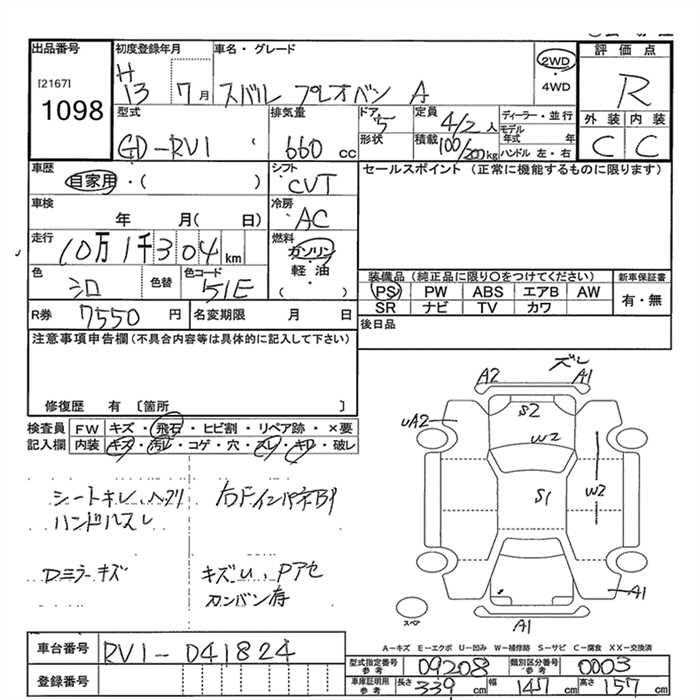 出品番号
[2167]
1098
初度登録年月
H
13 7月
車名・グレード
スバル プレオバン A
2WD
・
4WD
評価点
R
外装 内装
C C
型式
GD-RV1
排気量
660 cc
ドア
5
形状
定員
4/2 人
積載 100/200kg
ディーラー・並行
モデル
年式 年
ハンドル 左・右
車歴
自家用・( )
シフト
CVT
セールスポイント(正常に機能するものに限ります)
車検
年 月( 日)
冷房
AC
走行
10万1千304km
燃料
ガソリン
・
軽・油
( )
色
シロ
色替
色コード
51E
装備品(純正品に限り○をつけてください)
PS PW ABS エアB AW
SR ナビ TV カワ
新車保証書
有・無
R券 7550円
名変期限 月 日
後日品
注意事項申告欄(不具合内容等は具体的に記入して下さい)
修復歴 有 〔箇所 〕
検査員
記入欄
FW キズ・飛石・ヒビ割・リペア跡・×要
内装 キズ・汚レ・コゲ・穴・スレ・キレ・破レ
シートキレ、ヘタリ
ハンドルスレ
Dミラーキズ
キズU、Pアセ
カンバン存
ズレ
A2 A1
S2
UA2
W2
S1
W2
A1
A1
スペア
A-キズ E-エクボ U-凹み W-補修跡 S-サビ C-腐食 XX-交換済
車台番号 RV1-D41824
登録番号
型式指定番号
参考
09208
類別区分番号
参考
0003
車庫証明用
参考
長さ 339 cm 幅 147 cm 高さ 157 cm